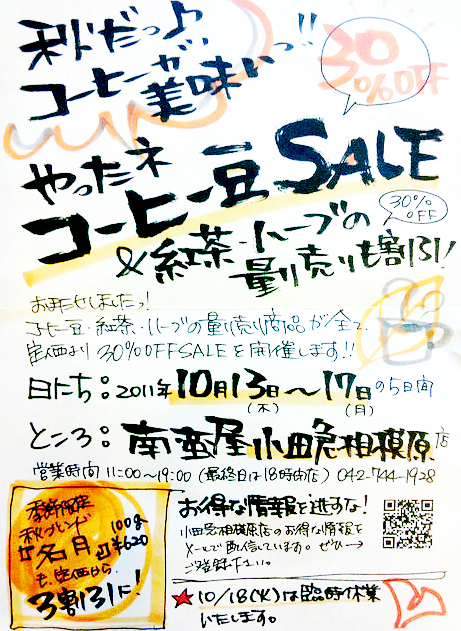 秋だっ♪
コーヒーが、
美味いっ!!
30
%OFF
やったネ
コーヒー豆 SALE
30%
OFF
&紅茶・ハーブの
量り売りも割引!
おまたせしましたっ!
コーヒー豆・紅茶・ハーブの量り売り商品が全て、
定価より30%OFF SALEを開催します!!
日にち:2011年10月13日〜17日の5日間
(木) (月)
ところ:南蛮屋 小田急相模原店
営業時間 11:00〜19:00 (最終日は18時閉店) 042-744-1928
季節限定
秋ブレンド
『名月』
100g
¥620
も、定価から
3割引に!
お得な情報を逃すな!
小田急相模原店のお得な情報を
メールで配信しています。ぜひ→
ご登録下さい。
★10/18(火)は臨時休業
いたします。